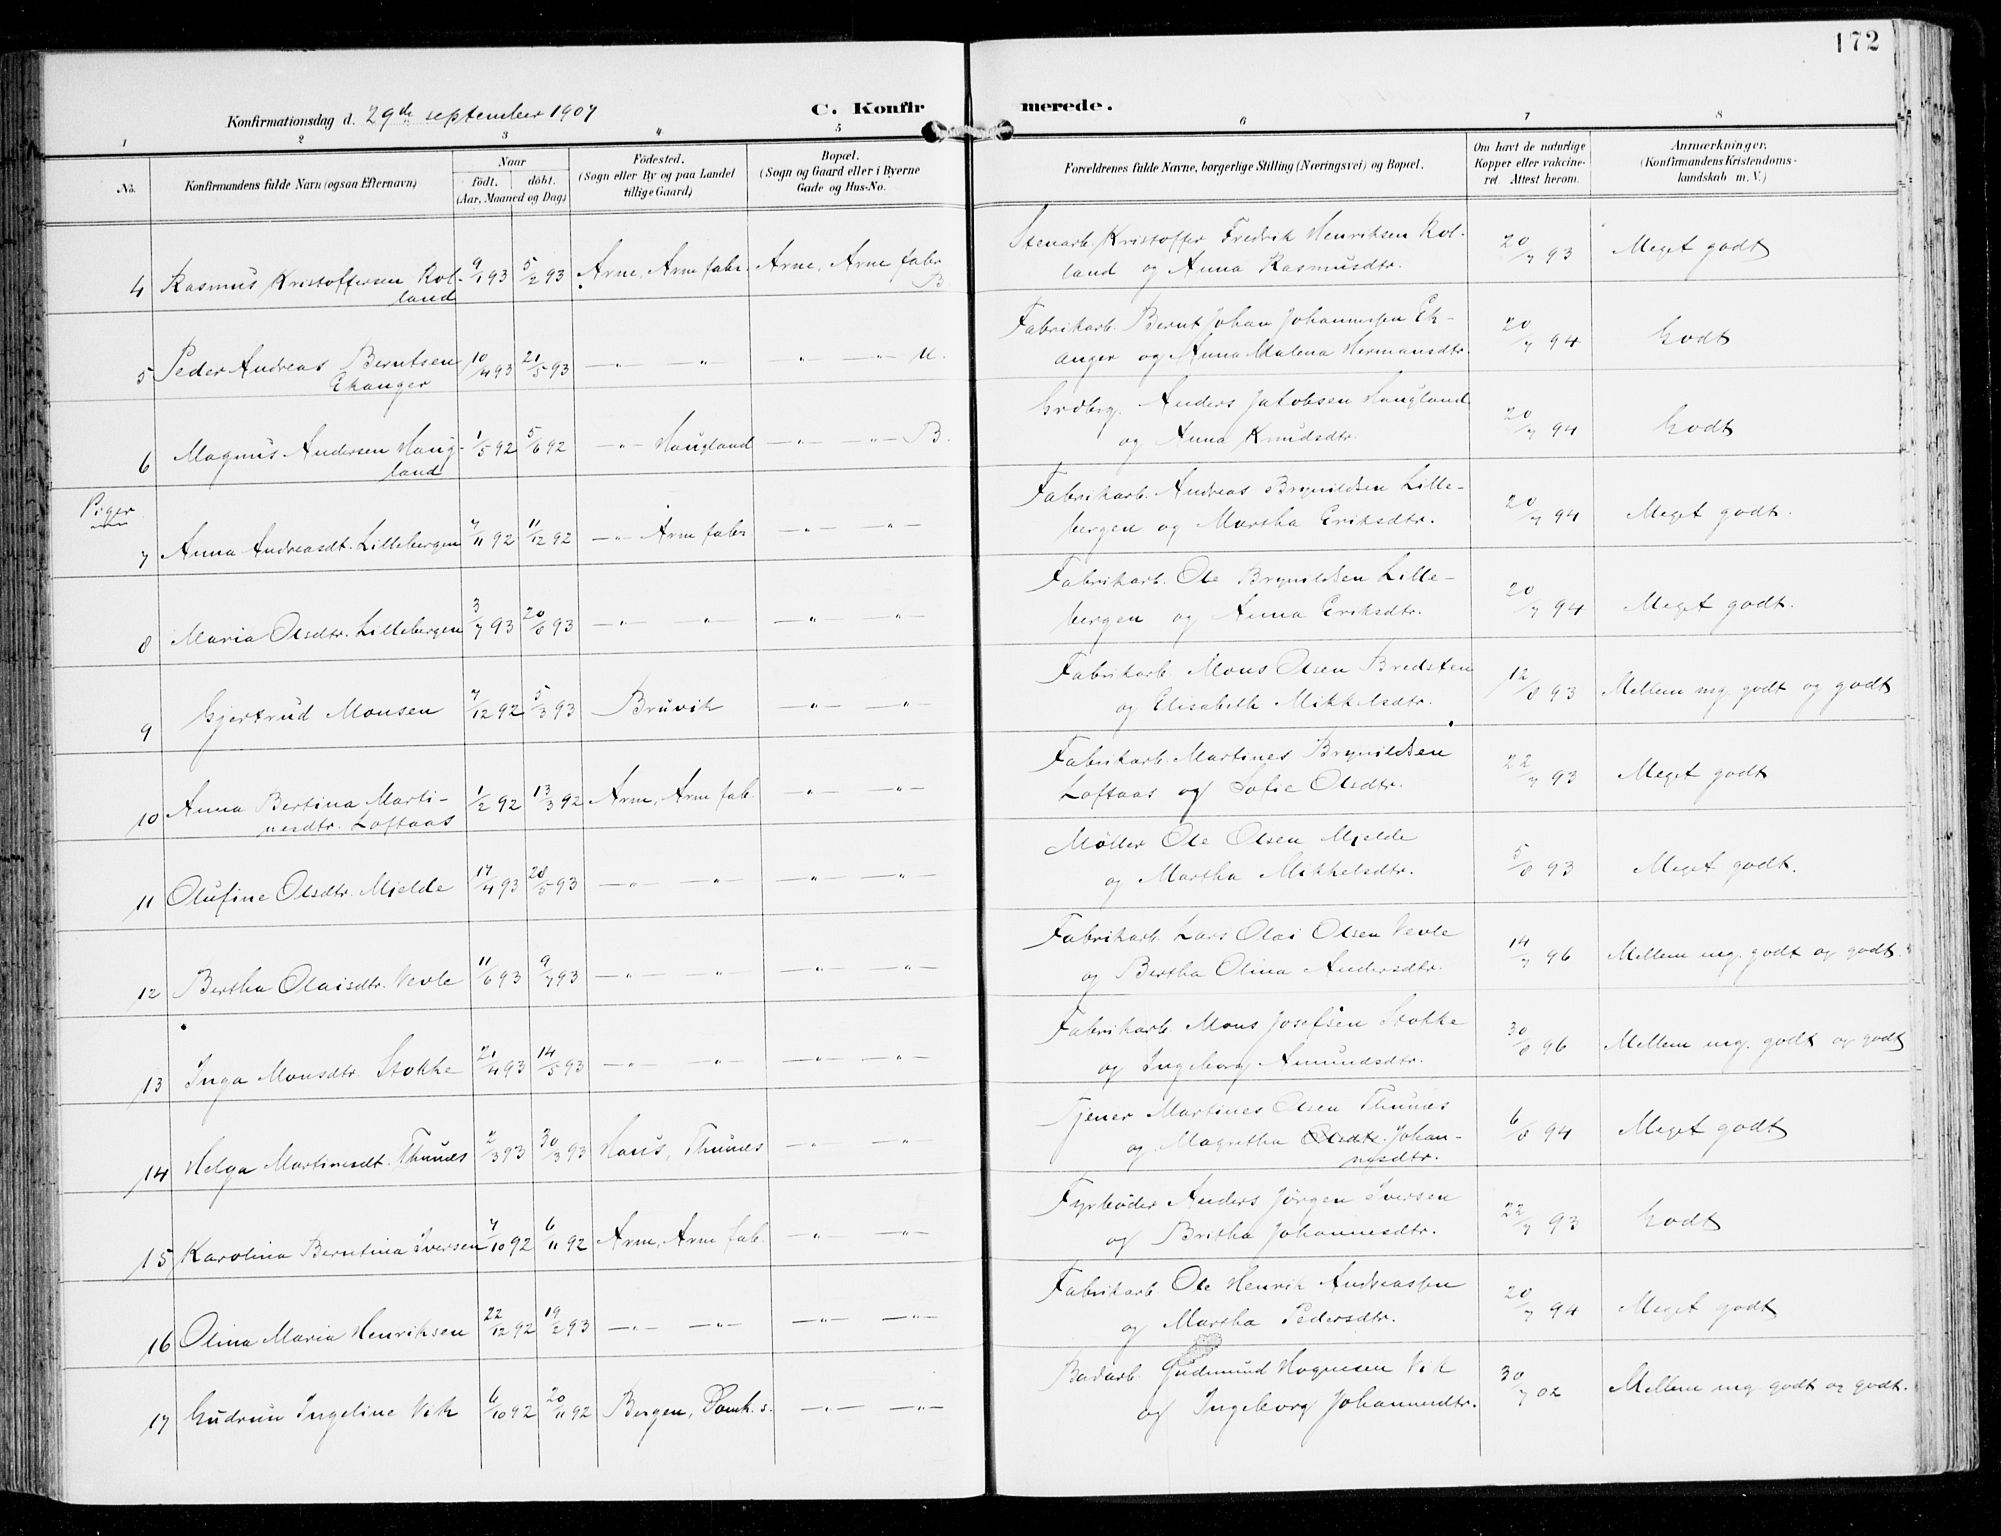 172
Konfirmationsdag d. 29de september 1907
C. Konfirmerede.
1 2 3 4 5 6 7 8
No.
Konfirmandens fulde Navn (ogsaa Efternavn)
Naar
födt. döbt.
(Aar, Maaned og Dag)
Födested.
(Sogn eller By og paa Landet
tillige Gaard)
Bopæl.
(Sogn og Gaard eller i Byerne
Gade og Hus-No.
Forældrenes fulde Navne, borgerlige Stilling (Næringsvei) og Bopæl.
Om havt de naturlige
Kopper eller vakcine-
ret. Attest herom.
Anmærkninger.
(Konfirmandens Kristendoms-
kundskab m. V.)
4 Rasmus Kristoffersen Rol-
land
9/1 93 5/2 93 Arne, Arne fabr. Arne, Arne fabr.
B
Stenarb. Kristoffer Fredrik Henriksen Rol-
land og Anna Rasmusdtr.
20/7 93 Meget godt
5 Peder Andreas Berntsen
Ekanger
10/4 93 21/5 93 —„— „ —„— —„— U.
Fabrikarb. Bernt Johan Johannessen Ek-
anger og Anna Malena Hermansdtr.
20/7 94 Godt
6 Magnus Andersen Haug-
land
1/5 92 5/6 92 —„— Haugland —„— —„— B.
Grdbrg. Anders Jakobsen Haugland
og Anna Knudsdtr.
20/7 94 Godt
Piger
7 Anna Andreasdt. Lillebergen
7/11 92 11/12 92 —„— Arne fabr —„— —„—
Fabrikarb. Andreas Brynildsen Lille-
bergen og Martha Eriksdtr.
20/7 94 Meget godt.
8 Maria Olsdtr. Lillebergen
3/7 93 20/8 93 —„— „ —„— —„—
Fabrikarb. Ole Brynildsen Lille-
bergen og Anna Eriksdtr.
20/7 94 Meget godt.
9 Gjertrud Monsen
7/12 92 5/3 93 Bruvik —„— —„—
Fabrikarb Mons Olsen Bredsten
og Elisabeth Mikkelsdtr.
12/8 93 Mellem mg. godt og godt
10 Anna Bertina Marti-
nesdtr. Loftaas
1/2 92 13/3 92 Arne, Arne fab. —„— —„—
Fabrikarb. Martines Brynildsen
Loftaas og Sofie Olsdtr.
22/7 93 Meget godt
11 Olufine Olsdtr. Mjelde
17/4 93 20/5 93 —„— —„— —„— —„—
Møller Ole Olsen Mjelde
og Martha Mikkelsdtr.
5/8 93 Meget godt.
12 Bertha Olaisdtr. Vevle
11/6 93 9/7 93 —„— —„— —„— —„—
Fabrikarb. Lars Olai Olsen Vevle
og Bertha Olina Andersdtr.
14/7 96 Mellem mg. godt og godt.
13 Inga Monsdtr. Stokke
21/4 93 14/5 93 —„— —„— —„— —„—
Fabrikarb Mons Josefsen Stokke
og Ingeborg Amundsdtr.
30/8 96 Mellem mg. godt og godt
14 Helga Martinesdt. Thunæs
2/3 93 30/3 93 Haus, Thunæs —„— —„—
Tjener Martines Olsen Thunæs
og Magretha Olsdtr. Johan-
nesdtr.
6/8 94 Meget godt
15 Karolina Berntina Iversen
7/10 92 6/11 92 Arne, Arne fab. —„— —„—
Fyrbøder Anders Jørgen Iversen
og Britha Johannesdtr.
22/7 93 Godt
16 Olina Maria Henriksen
22/12 92 19/2 93 —„— —„— —„— —„—
Fabrikarb. Ole Henrik Andreassen
og Martha Pedersdtr.
20/7 94 Meget godt
17 Gudrun Ingeline Vik
6/10 92 20/11 92 Bergen, Domk. s. —„— —„—
Gudmund Hognesen Vik
og Ingeborg Johannesdtr.
30/7 02 Mellem mg. godt og godt.